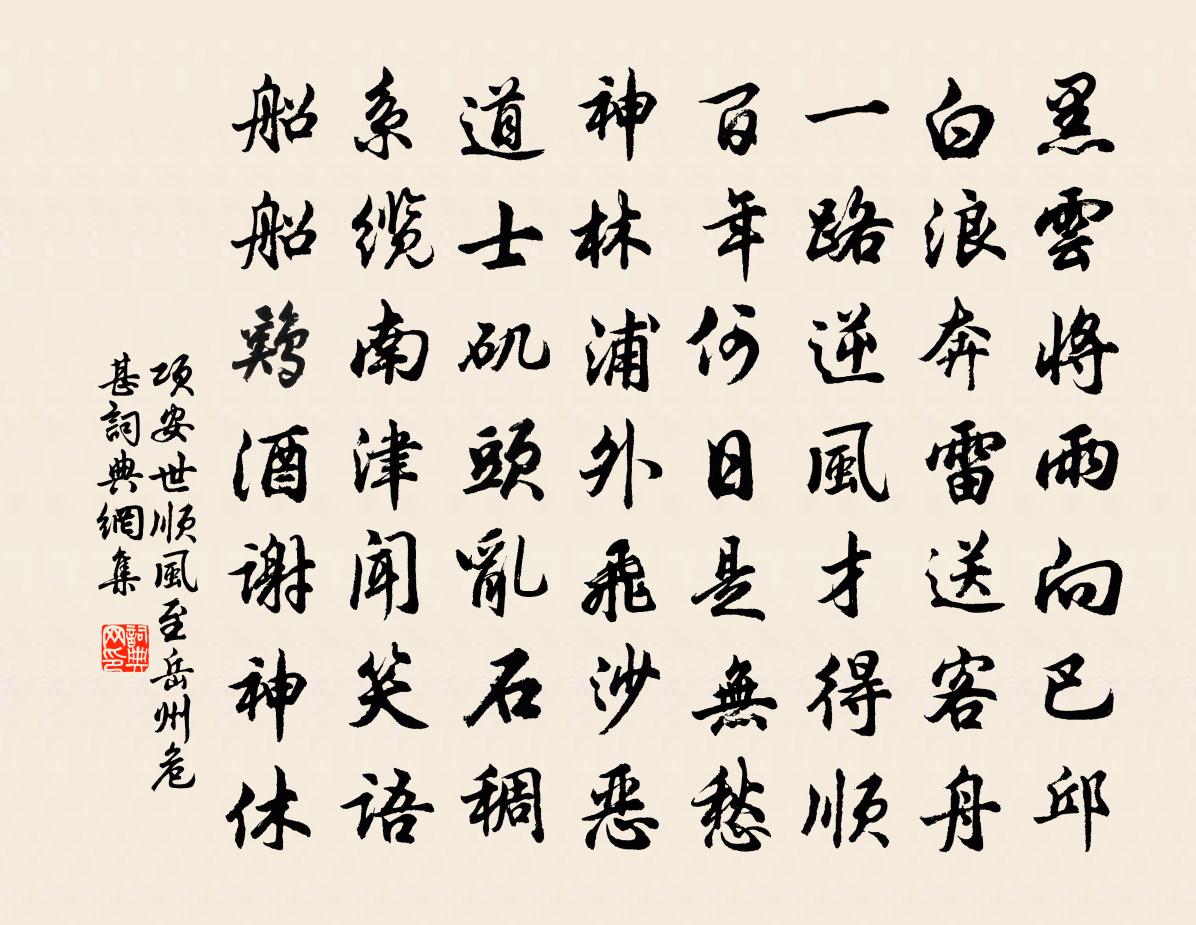 黑雲將雨向巴邱
白浪奔雷送客舟
一路逆風才得順
百年何日是無愁
神林浦外飛沙惡
道士矶頭亂石稠
系缆南津聞笑語
船船鶏酒謝神休
項安世順風至岳州危
甚詞典網集
詞典
网印